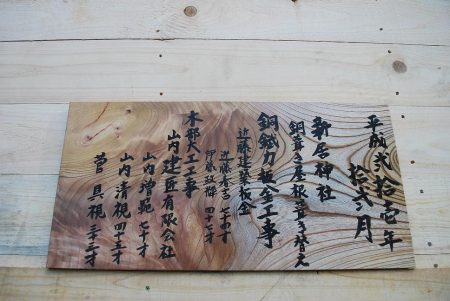 平成弐拾壱年
拾弐月
新居神社
銅葺き屋根葺き替え
銅鈑力板金工事
近藤建築板金
近藤 七十四才
伊藤 四七才
木部大工工事
山内建匠有限会社
山内増範 七十才
山内清視 四十五才
菅 具視 三十三才